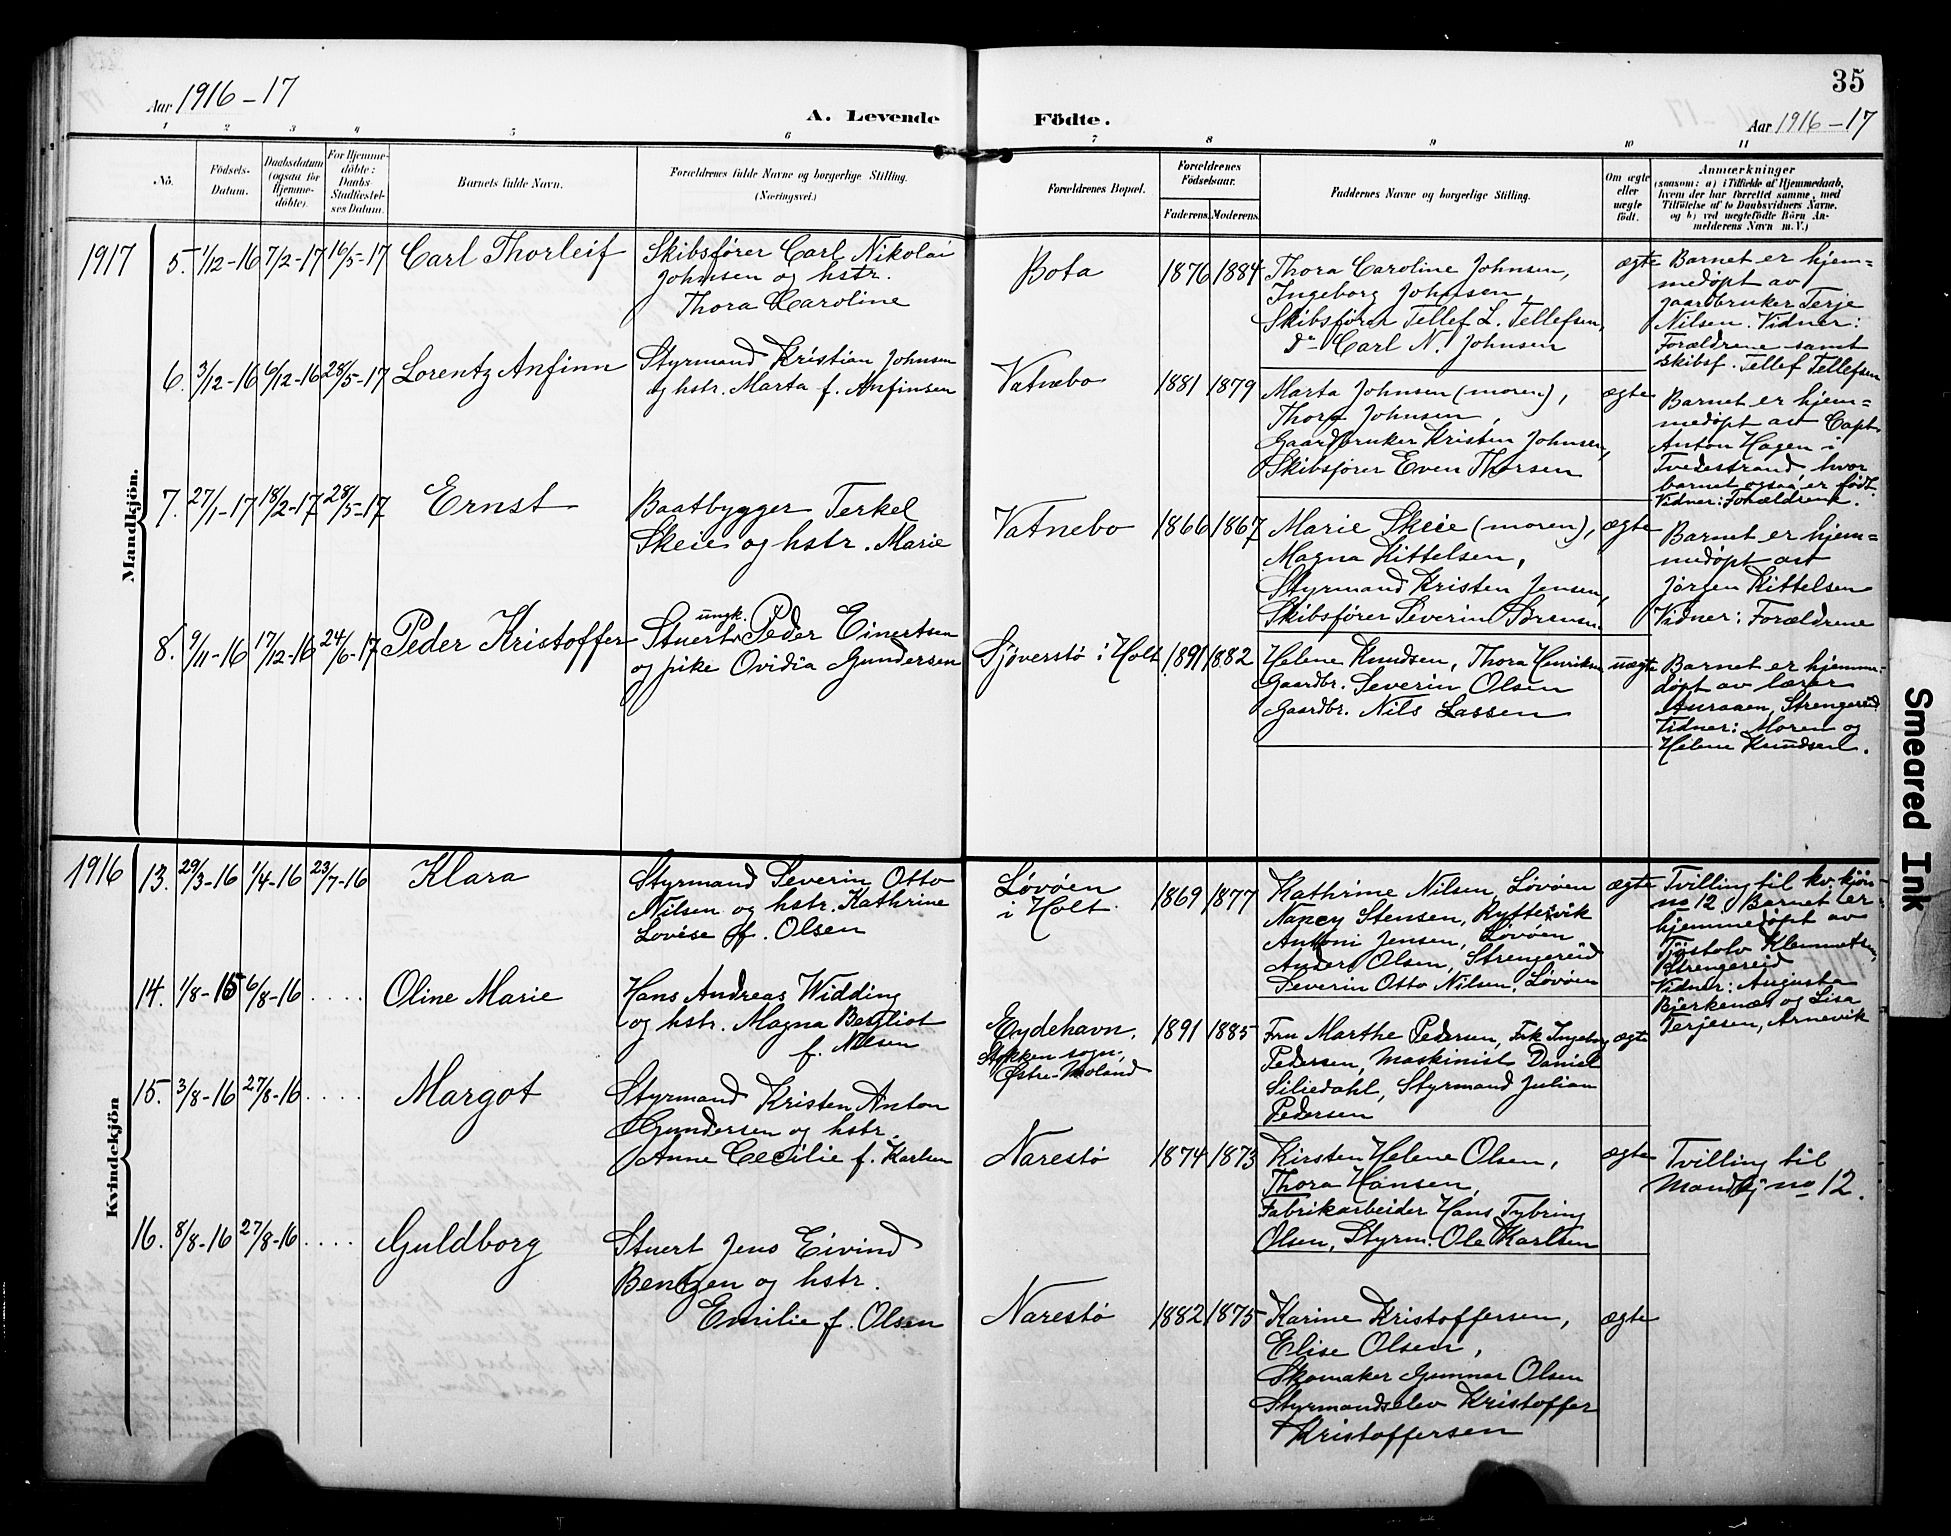 35
Aar 1916-17
A. Levende Födte.
Aar 1916-17
1 2 3 4 5 6 7 8 9 10 11
No.
Födsels-
Datum.
Daabsdatum
(ogsaa for
Hjemme-
döbte).
For Hjemme-
döbte:
Daabs-
Stadfæstel-
ses Datum.
Barnets fulde Navn.
Forældrenes fulde Navne og borgerlige Stilling.
(Næringsvei.)
Forældrenes Bopæl.
Forældrenes
Födselsaar.
Faderens. Moderens.
Faddernes Navne og borgerlige Stilling.
Om ægte
eller
uægte
födt.
Anmærkninger
(saasom: a) i Tilfælde af Hjemmedaab,
hvem der har forrettet samme, med
Tilföielse af to Daabsvidners Navne,
og b) ved uægtefödte Börn An-
melderens Navn m. V.)
Mandkjön.
1917
5. 1/12-16 7/2-17 16/5-17 Carl Thorleif
Skibsfører Carl Nikolai
Johnsen og hstr.
Thora Caroline
Bota 1876 1884
Thora Caroline Johnsen,
Ingeborg Johnsen,
Skibsfører Tellef L. Tellefsen,
Do Carl N. Johnsen
ægte
Barnet er hjem=
medøpt av
gaardbruker Terje
Nilsen. Vidner:
Forældrene samt
skibsf. Tellef Tellefsen
6. 3/12-16 6/12-16 28/5-17 Lorentz Anfinn
Styrmand Kristian Johnsen
og hstr. Marta f. Anfinsen
Vatnebo 1881 1879
Marta Johnsen (moren),
Thora Johnsen,
Gaardbruker Kristen Johnsen,
Skibsfører Even Thorsen
ægte
Barnet er hjem=
medøpt av Capt.
Anton Hagen i
Tvedestrand hvor
barnet også er født.
Vidner: Forældrene.
7. 27/1-17 18/2-17 28/5-17 Ernst
Baatbygger Terkel
Skeie og hstr. Marie
Vatnebo 1866 1867
Marie Skeie (moren),
Magna Kittelsen,
Styrmand Kristen Jensen,
Skibsfører Severin Sørensen.
ægte
Barnet er hjem=
medøpt av
Jørgen Kittelsen
Vidner: Forældrene
8. 9/11-16 17/12-16 24/6-17 Peder Kristoffer
ungk.
Stuert Peder Einertsen
og pike Ovidia Gundersen
Sjøverstø i Holt 1891 1882
Helene Knudsen, Thora Henriksen
Gaardbr. Severin Olsen
Gaardbr. Nils Lassen
uægte
Barnet er hjemme-
døpt av lærer
Auraaen, Strengereid
Vidner: Moren og
Helene Knudsen.
Kvindekjön
1916
13. 29/3-16 1/4-16 23/7-16 Klara
Styrmand Severin Otto
Nilsen og hstr. Kathrine
Lovise f. Olsen
Løvøen
i Holt
1869 1877
Kathrine Nilsen, Løvøen
Nancy Stensen, Ryftevik
Antoni Jensen, Løvøen
Anders Olsen, Strengereid
Severin Otto Nilsen, Løvøen
ægte
Tvilling til kv. kjøn
no 12. Barnet er
hjemmedøpt av
Tjøstolv Klemmetsen,
Strengereid
Vidner: Augusta
Bjerkenæs og Lisa
Terjesen, Arnevik
14. 1/8-15 6/8-16 .... Oline Marie
Hans Andreas Widding
og hstr. Magna Bergliot
f. Nilsen
Eydehavn,
Stokken sogn,
Østre-Moland
1891 1885
Fru Marthe Pedersen, Frk Ingeborg
Pedersen, Maskinist Daniel
Siliedahl, Styrmand Julian
Pedersen
ægte
15. 3/8-16 27/8-16 .... Margot
Styrmand Kristen Anton
Gundersen og hstr.
Anne Cecilie f. Karlsen
Narestø 1874 1873
Kirsten Helene Olsen,
Thora Hansen,
Fabrikarbeider Hans Tybring
Olsen, Styrm. Ole Karlsen
ægte
Tvilling til
Mandkj no 12.
16. 8/8-16 27/8-16 .... Guldborg
Stuert Jens Eivind
Bentzen og hstr.
Emilie f. Olsen
Narestø 1882 1875
Karine Kristoffersen,
Elise Olsen,
Skomaker Gunnar Olsen
Styrmandselev Kristoffer
Kristoffersen
ægte
Smeared Ink